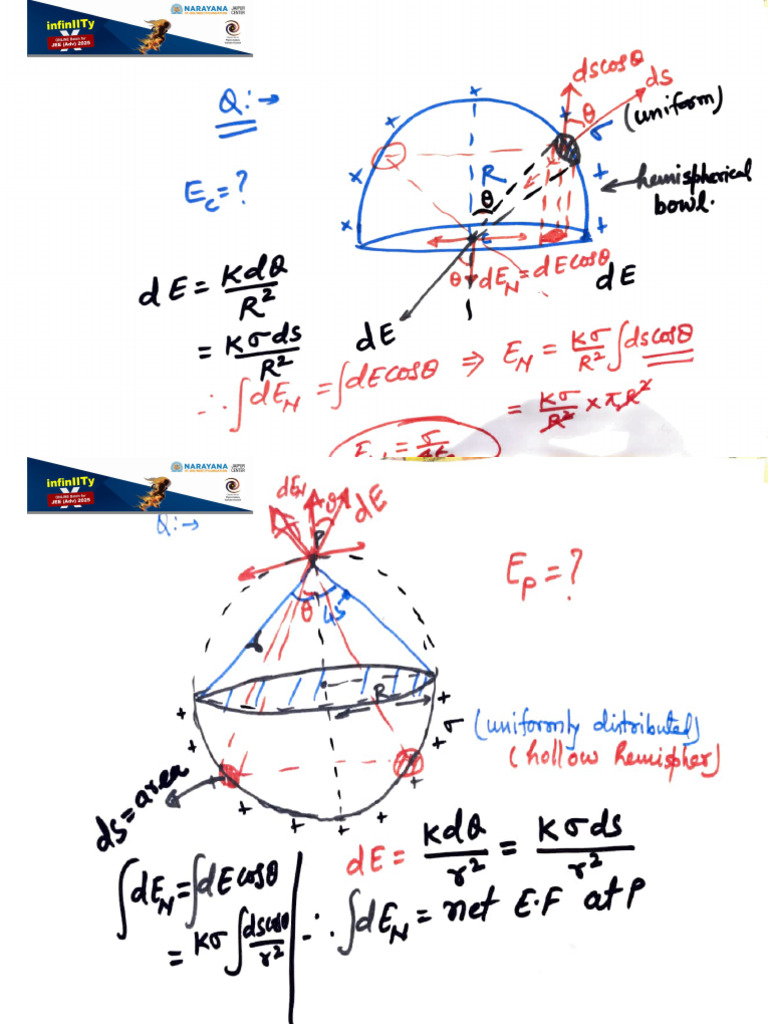 infinIITy
X
ONLINE Batch for
JEE (Adv) 2025
NARAYANA
JAIPUR
CENTER
Q:→
dscosθ
ds
θ
σ (uniform)
hemispherical
bowl.
R
θ
E_c = ?
c
θ
dE_N = dEcosθ
dE
dE
dE = Kdq/R²
= Kσds/R²
∴ ∫dE_N = ∫dEcosθ ⇒ E_N = Kσ/R² ∫dscosθ
= Kσ/R² × πR²
infinIITy
X
ONLINE Batch for
JEE (Adv) 2025
NARAYANA
JAIPUR
CENTER
Q:→
dE_N
θ
dE
P
E_P = ?
θ
45
R
σ (uniformly distributed)
(hollow hemispher)
ds = area
dE = Kdq/r² = Kσds/r²
∫dE_N = ∫dEcosθ
= Kσ ∫dscosθ/r²
∴ ∫dE_N = net E.F at P